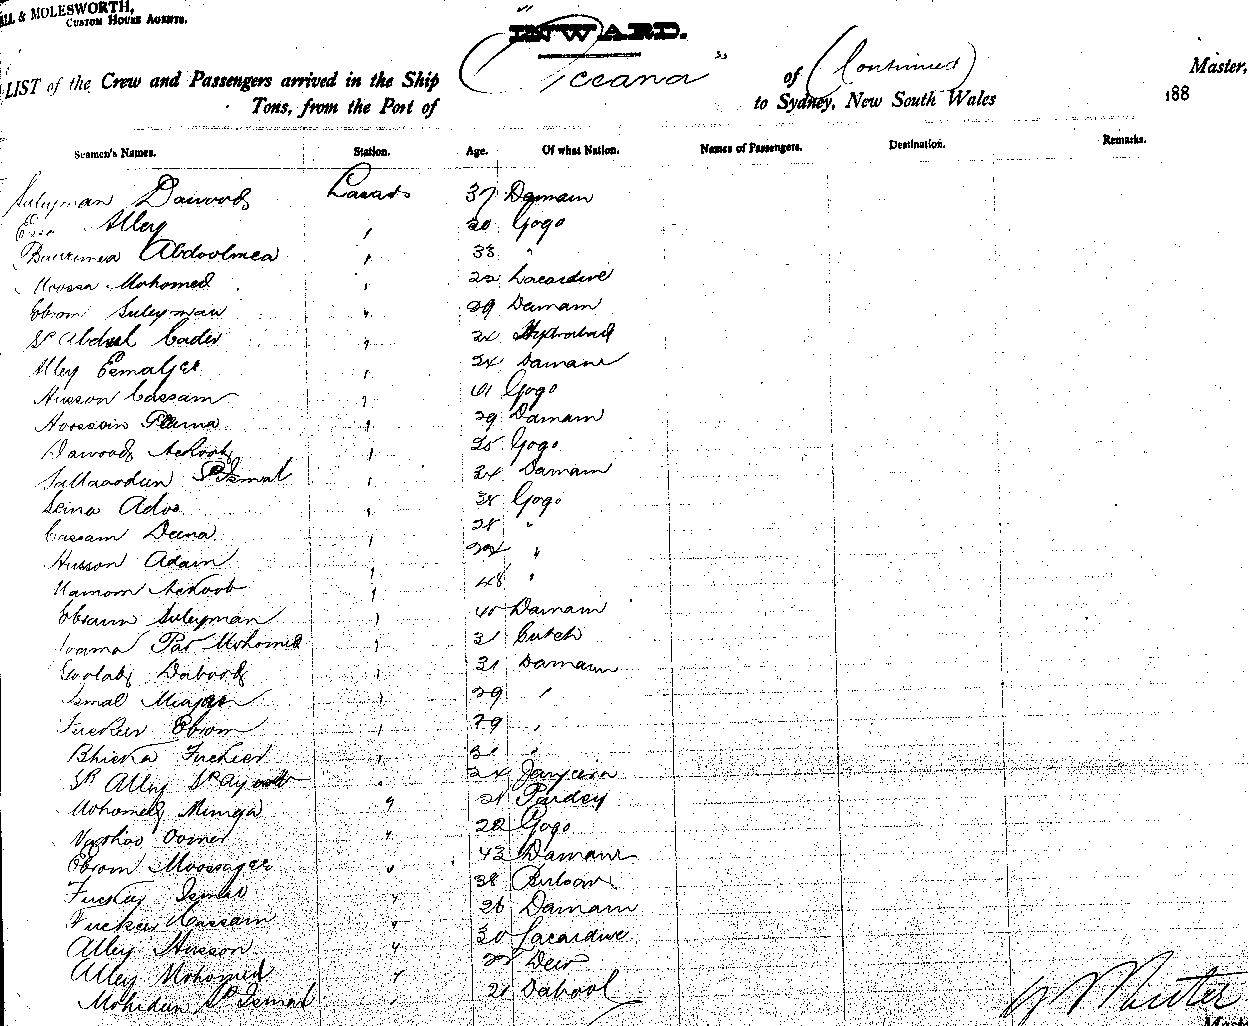 ILL & MOLESWORTH,
CUSTOM HOUSE AGENTS.
INWARD.
LIST of the Crew and Passengers arrived in the Ship "Oceana" of (Continued) Master,
Tons, from the Port of to Sydney, New South Wales 188
Seamen's Names. Station. Age. Of what Nation. Names of Passengers. Destination. Remarks.
Suleyman Dawood Lascars 37 Damam
Essa Alley " 20 Gogo
Abdoolmea " 33 "
Moossa Mohomed " 22 Lacardive
Ebrom Suleyman " 29 Damam
Sk Abdul Cader " 24 Hydrabad
Alley Esmaljee " 24 Damam
Husson Cassam " 61 Gogo
Hoossein " 29 Damam
Dawood Ackoob " 25 Gogo
Sk Ismal " 34 Damam
Adoo " 38 Gogo
Cassam Deena " 28 "
Husson Adam " 24 "
Mamom Ackoob " 48 "
Ebraum Suleyman " 40 Damam
Par Mohomed " 31 Cutch
Goolab Dabood " 31 Damam
Ismal " 29 "
Fucker Ebrom " 29 "
Bhicka Fucker " 31 "
Sk Alley Sk Ayoob " 24
Mohomed " 21
Oomer " 22 Gogo
Ebrom Moosajee " 43 Damam
Fucker Ismal " 38
Fucker Cassam " 26 Damam
Alley Husson " 30 Lacardive
Alley Mohomed " Dew
Mohidun Sk Ismal " 21 Dabool